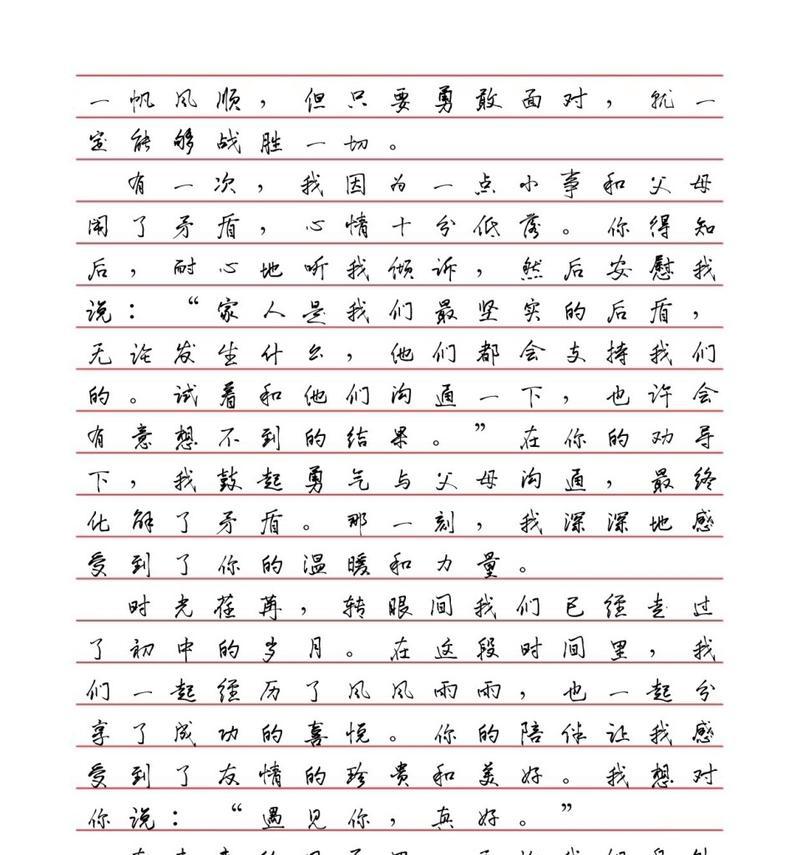 一帆风顺，但只要勇敢面对，就一
定能够战胜一切。
有一次，我因为一点小事和父母
闹了矛盾，心情十分低落。你得知
后，耐心地听我倾诉，然后安慰我
说：“家人是我们最坚实的后盾，
无论发生什么，他们都会支持我们
的。试着和他们沟通一下，也许会
有意想不到的结果。”在你的劝导
下，我鼓起勇气与父母沟通，最终
化解了矛盾。那一刻，我深深地感
受到了你的温暖和力量。
时光荏苒，转眼间我们已经走过
了初中的岁月。在这段时间里，我
们一起经历了风风雨雨，也一起分
享了成功的喜悦。你的陪伴让我感
受到了友情的珍贵和美好。我想对
你说：“遇见你，真好。”